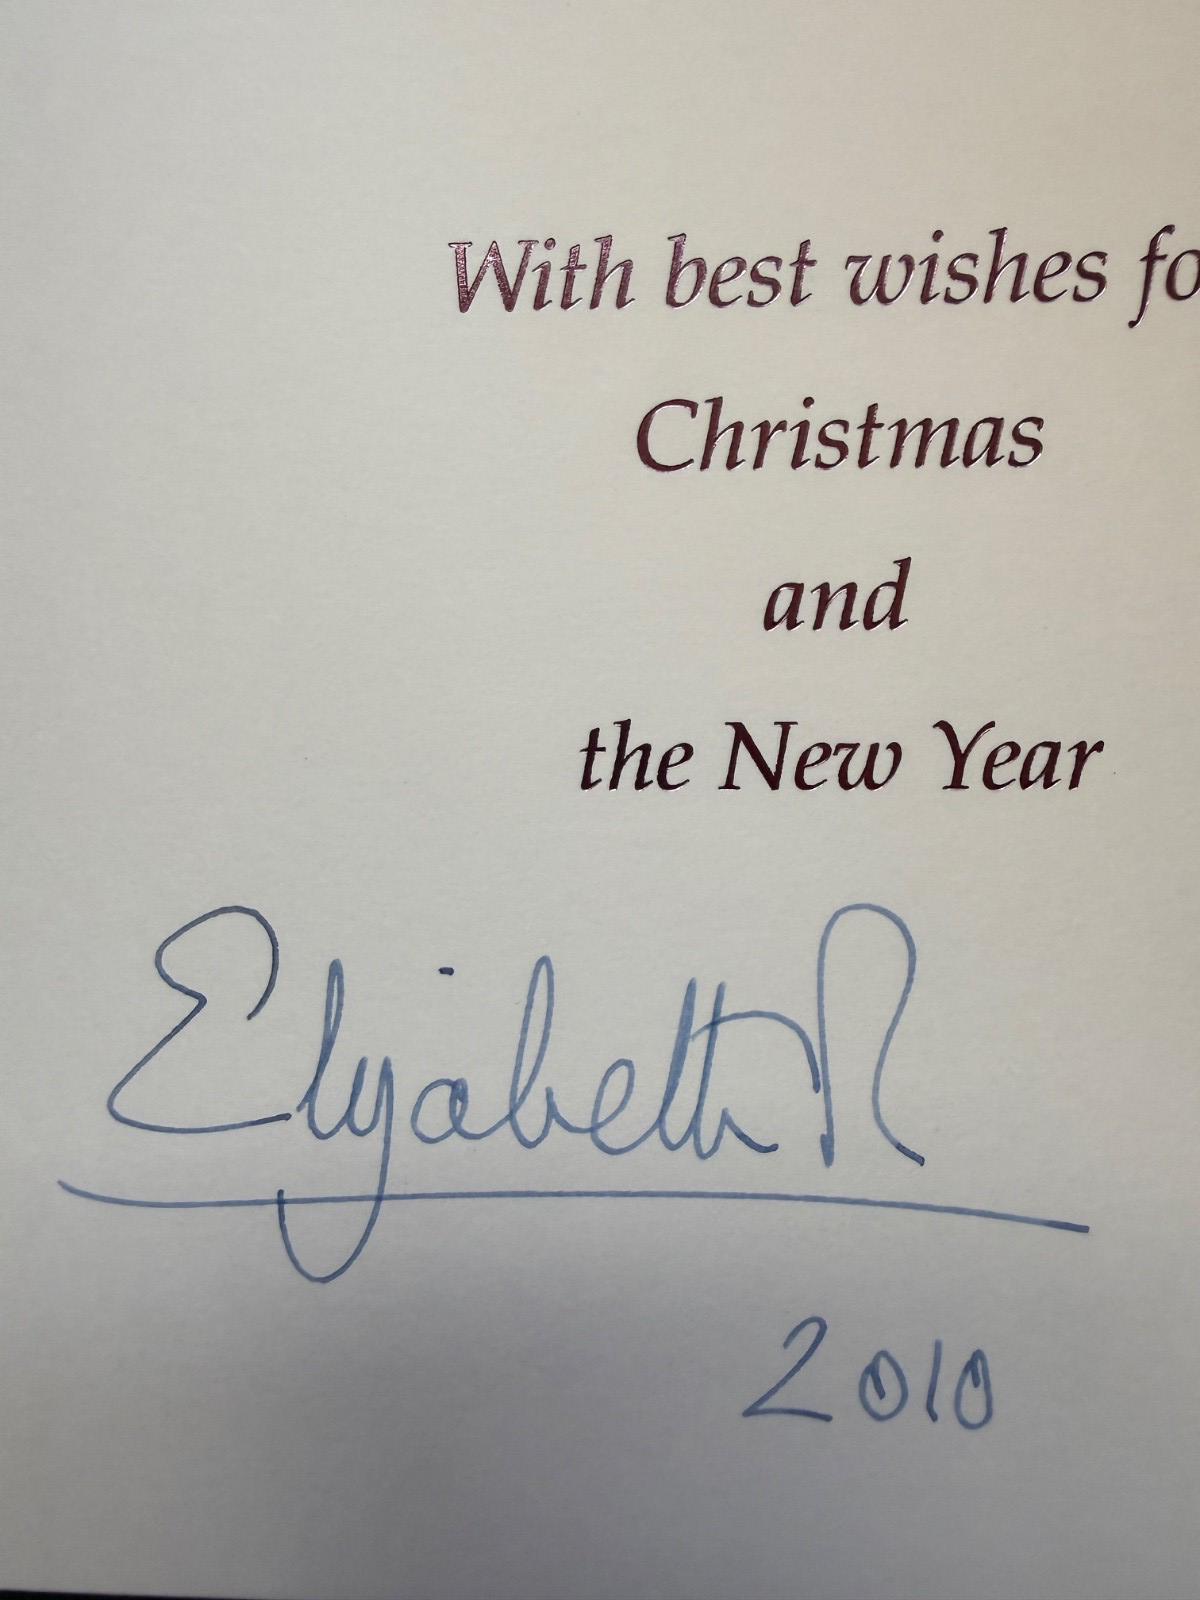 With best wishes fo
Christmas
and
the New Year
Elizabeth R
2010